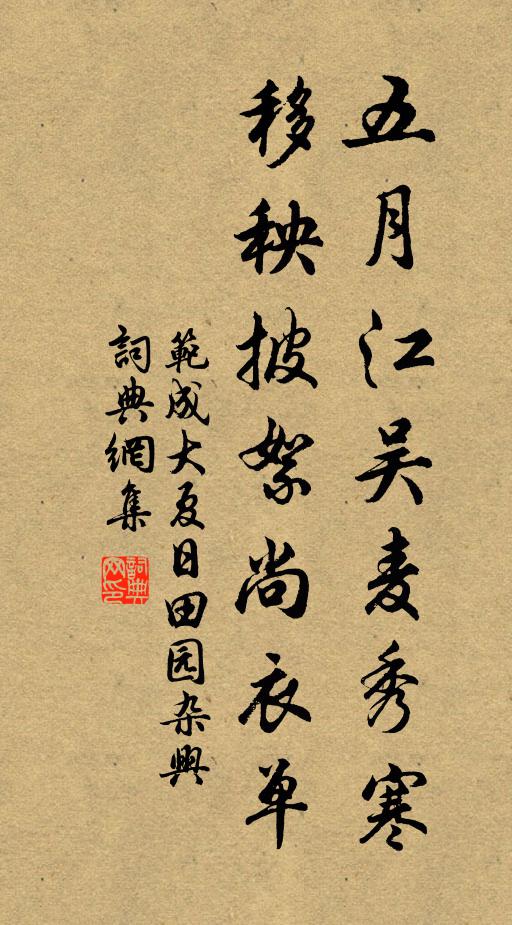 五月江吴麦秀寒
移秧披絮尚衣单
範成大夏日田园杂興
詞典網集
詞典
网印